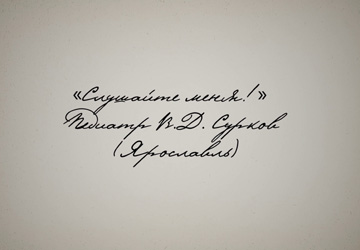 «Слушайте меня!»
Педиатр В.Д. Сурков
(Ярославль)